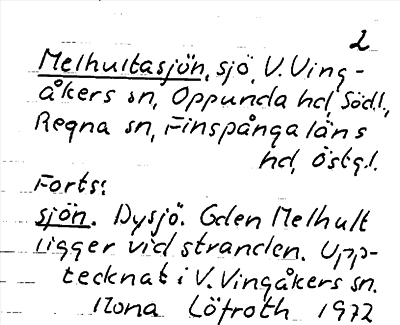 2
Melhultasjön, sjö, V. Ving-
åkers sn, Oppunda hd, Södl.,
Regna sn, Finspånga läns
hd, Östg.l.
Forts:
sjön. Dysjö. Gden Melhult
ligger vid stranden. Upp-
tecknat i V. Vingåkers sn.
Ilona Löfroth 1972